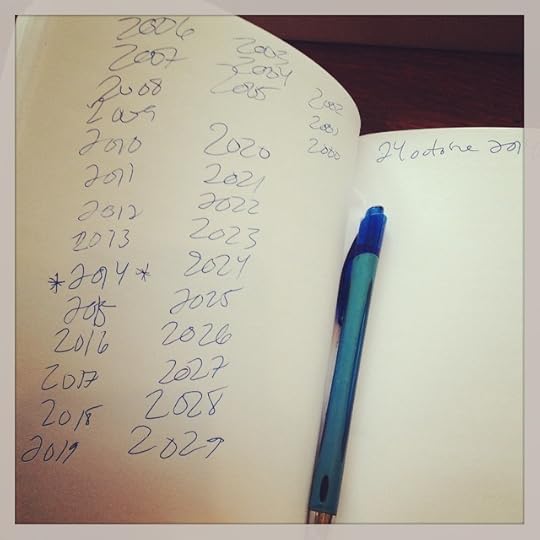 2006
2007
2008
2009
2010
2011
2012
2013
*2014*
2015
2016
2017
2018
2019
2003
2004
2005
2020
2021
2022
2023
2024
2025
2026
2027
2028
2029
2002
2001
2000
24 octobre 201